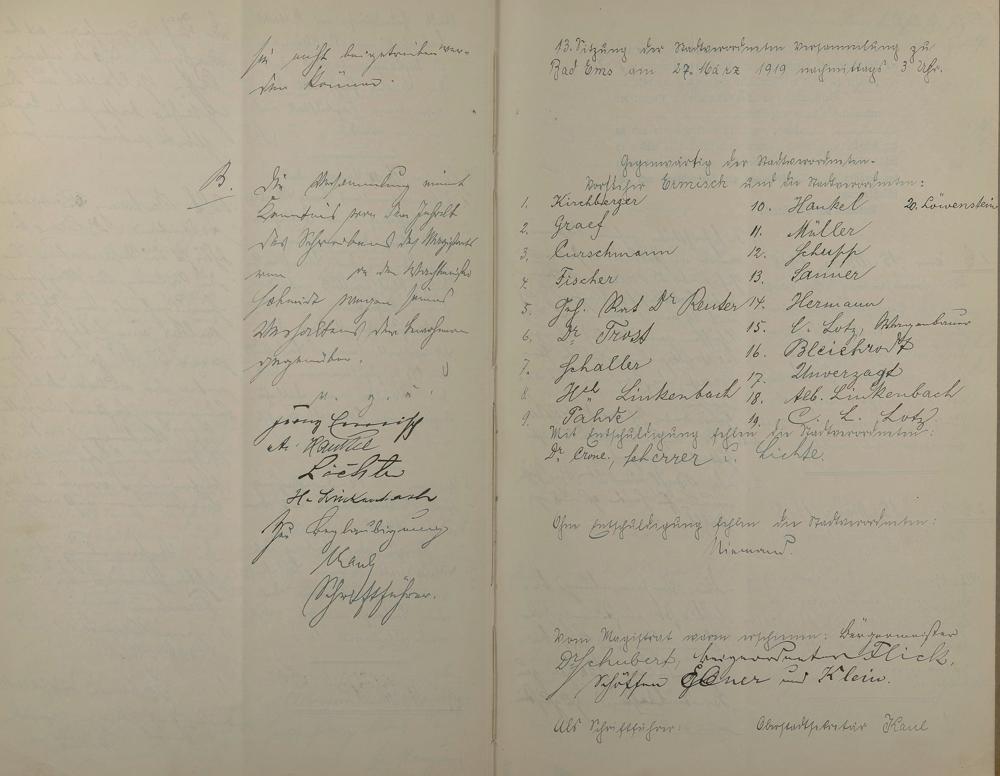 sie nicht beigetrieben wer-
den können.
B.
Die Versammlung nimmt
Kenntnis von dem Inhalt
des Schreibens des Magistrats
an den Wachtmeister
Schmidt wegen seines
Verhaltens den Einwohnern
gegenüber.
v. g. u.
Franz Ermisch
A. Hankel
H. Linkenbach
Zur Beglaubigung
Kaul
Schriftführer.
13. Sitzung der Stadtverordneten Versammlung zu
Bad Ems am 27. März 1919 nachmittags 3 Uhr.
Gegenwärtig der Stadtverordneten-
Vorsteher Ermisch und die Stadtverordneten:
1. Kirchberger
2. Graef
3. Curschmann
4. Fischer
5. Geh. Rat Dr Reuter
6. Dr. Trost
7. Schaller
8. Hch Linkenbach
9. Fahde
10. Hankel
11. Müller
12. Schupp
13. Sanner
14. Hermann
15. C. Lotz, Wagenbauer
16. Bleichrodt
17. Unverzagt
18. Alb. Linkenbach
19. C. L. Lotz
20. Löwenstein
Mit Entschuldigung fehlen die Stadtverordneten:
Dr. Crone, Scherrer u. Lichte.
Ohne Entschuldigung fehlen die Stadtverordneten:
Niemand.
Vom Magistrat waren erschienen: Bürgermeister
Dr Schubert, Beigeordneter Flick,
Schöffen und Klein.
Als Schriftführer: Oberstadtsekretär Kaul